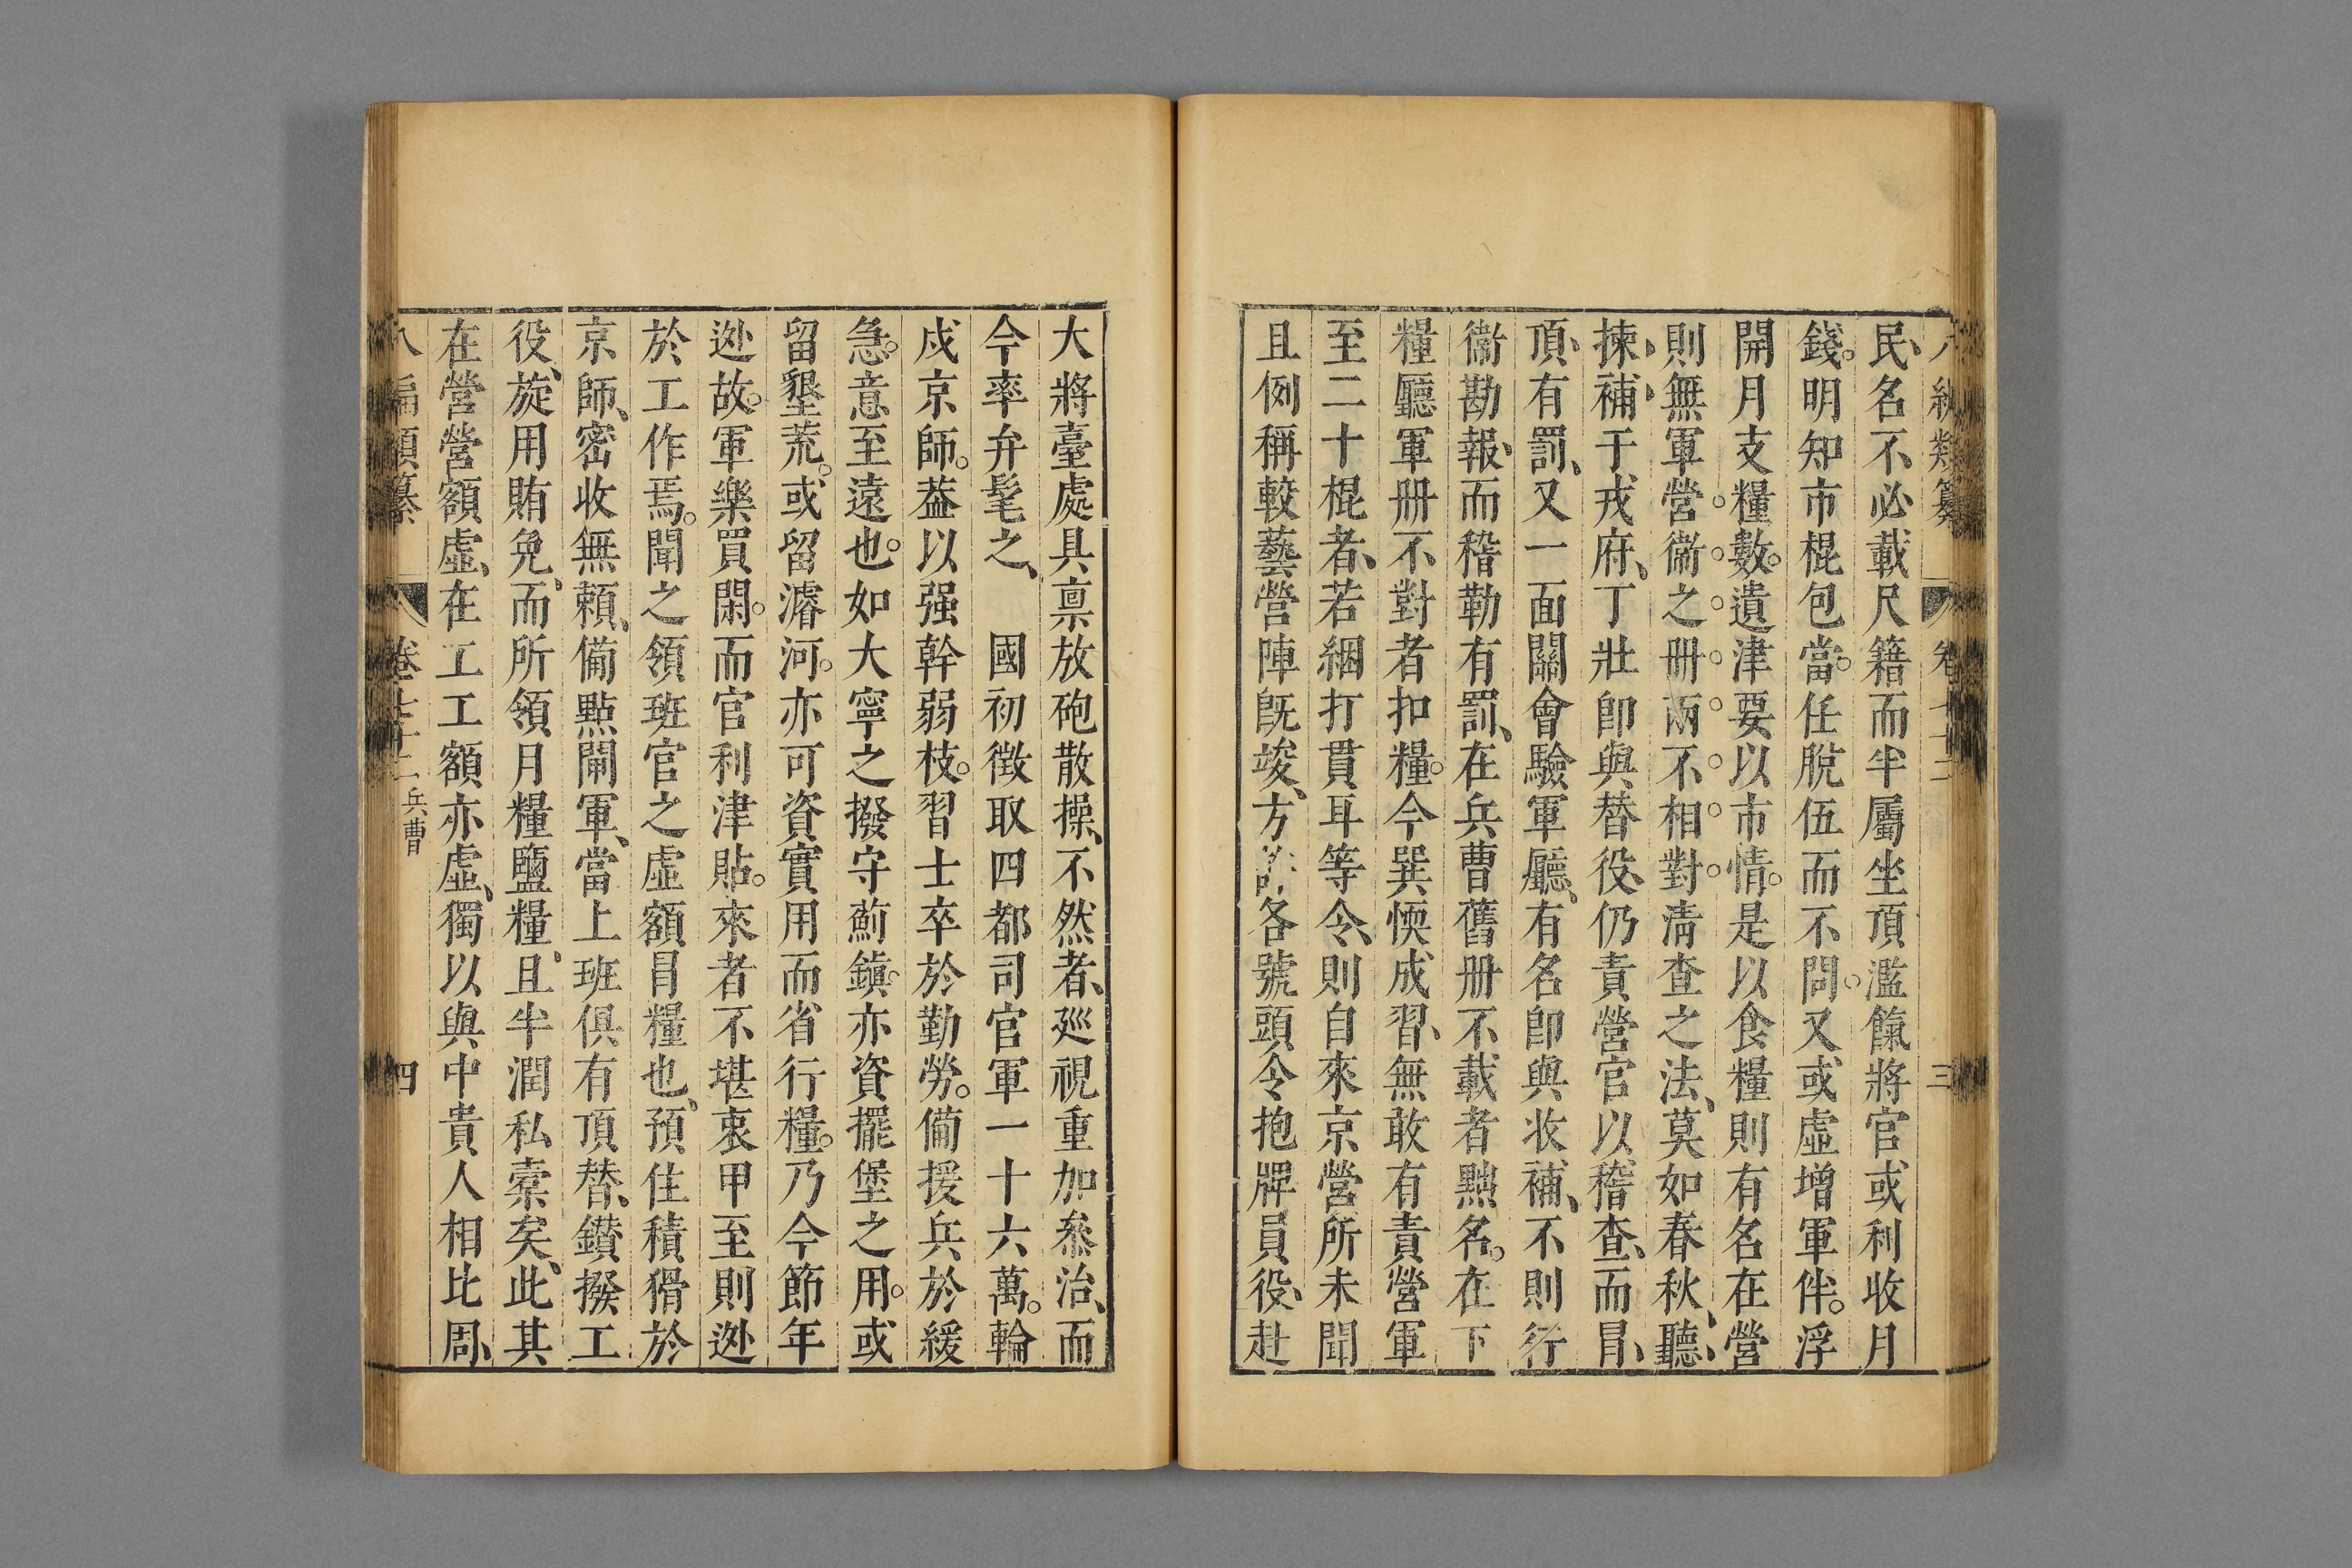 民、名不必載尺籍而半屬坐頂濫餼將官或利收月
錢。明知市棍包當。任脫伍而不問。又或虛增軍伴。浮
開月支糧數。遺津要以市情。是以食糧則有名在營
則無軍營。衞。之。册。兩。不。相。對。淸查之法、莫如春秋、聽、
揀、補、于戎府、丁壯卽與替役、仍責營官以稽查、而冒、
頂、有罰、又一面關會驗軍廳、有名卽與收補、不則行
衞勘報、而稽勒有罰、在兵曹舊册不載者㸃名。在下
糧廳軍册不對者扣糧。今巽愞成習、無敢有責營軍
至二十棍者、若綑打貫耳等令、則自來京營所未聞
且例稱較藝營陣旣竣、方許各號頭令抱牌員役、赴
大將臺處具禀放砲散操、不然者、廵視重加叅治、而
今率弁髦之、國初徵取四都司官軍一十六萬。輪
戍京師。葢以强幹弱枝。習士卒於勤勞。備援兵於緩
急。意至遠也。如大寧之撥守薊鎭。亦資擺堡之用。或
留墾荒。或留濬河。亦可資實用而省行糧。乃今節年
逊故。軍樂買閑。而官利津貼。來者不堪衷甲至則逊
於工作焉。聞之領班官之虛額冒糧也、預住積猾於
京師、密收無賴、備點閘軍、當上班俱有頂替、鑚撥工
役、旋用賄免、而所領月糧鹽糧、且半潤私槖矣、此其
在營營額虛、在工工額亦虛、獨以與中貴人相比周、
八編類纂
卷七十二
兵曹
四